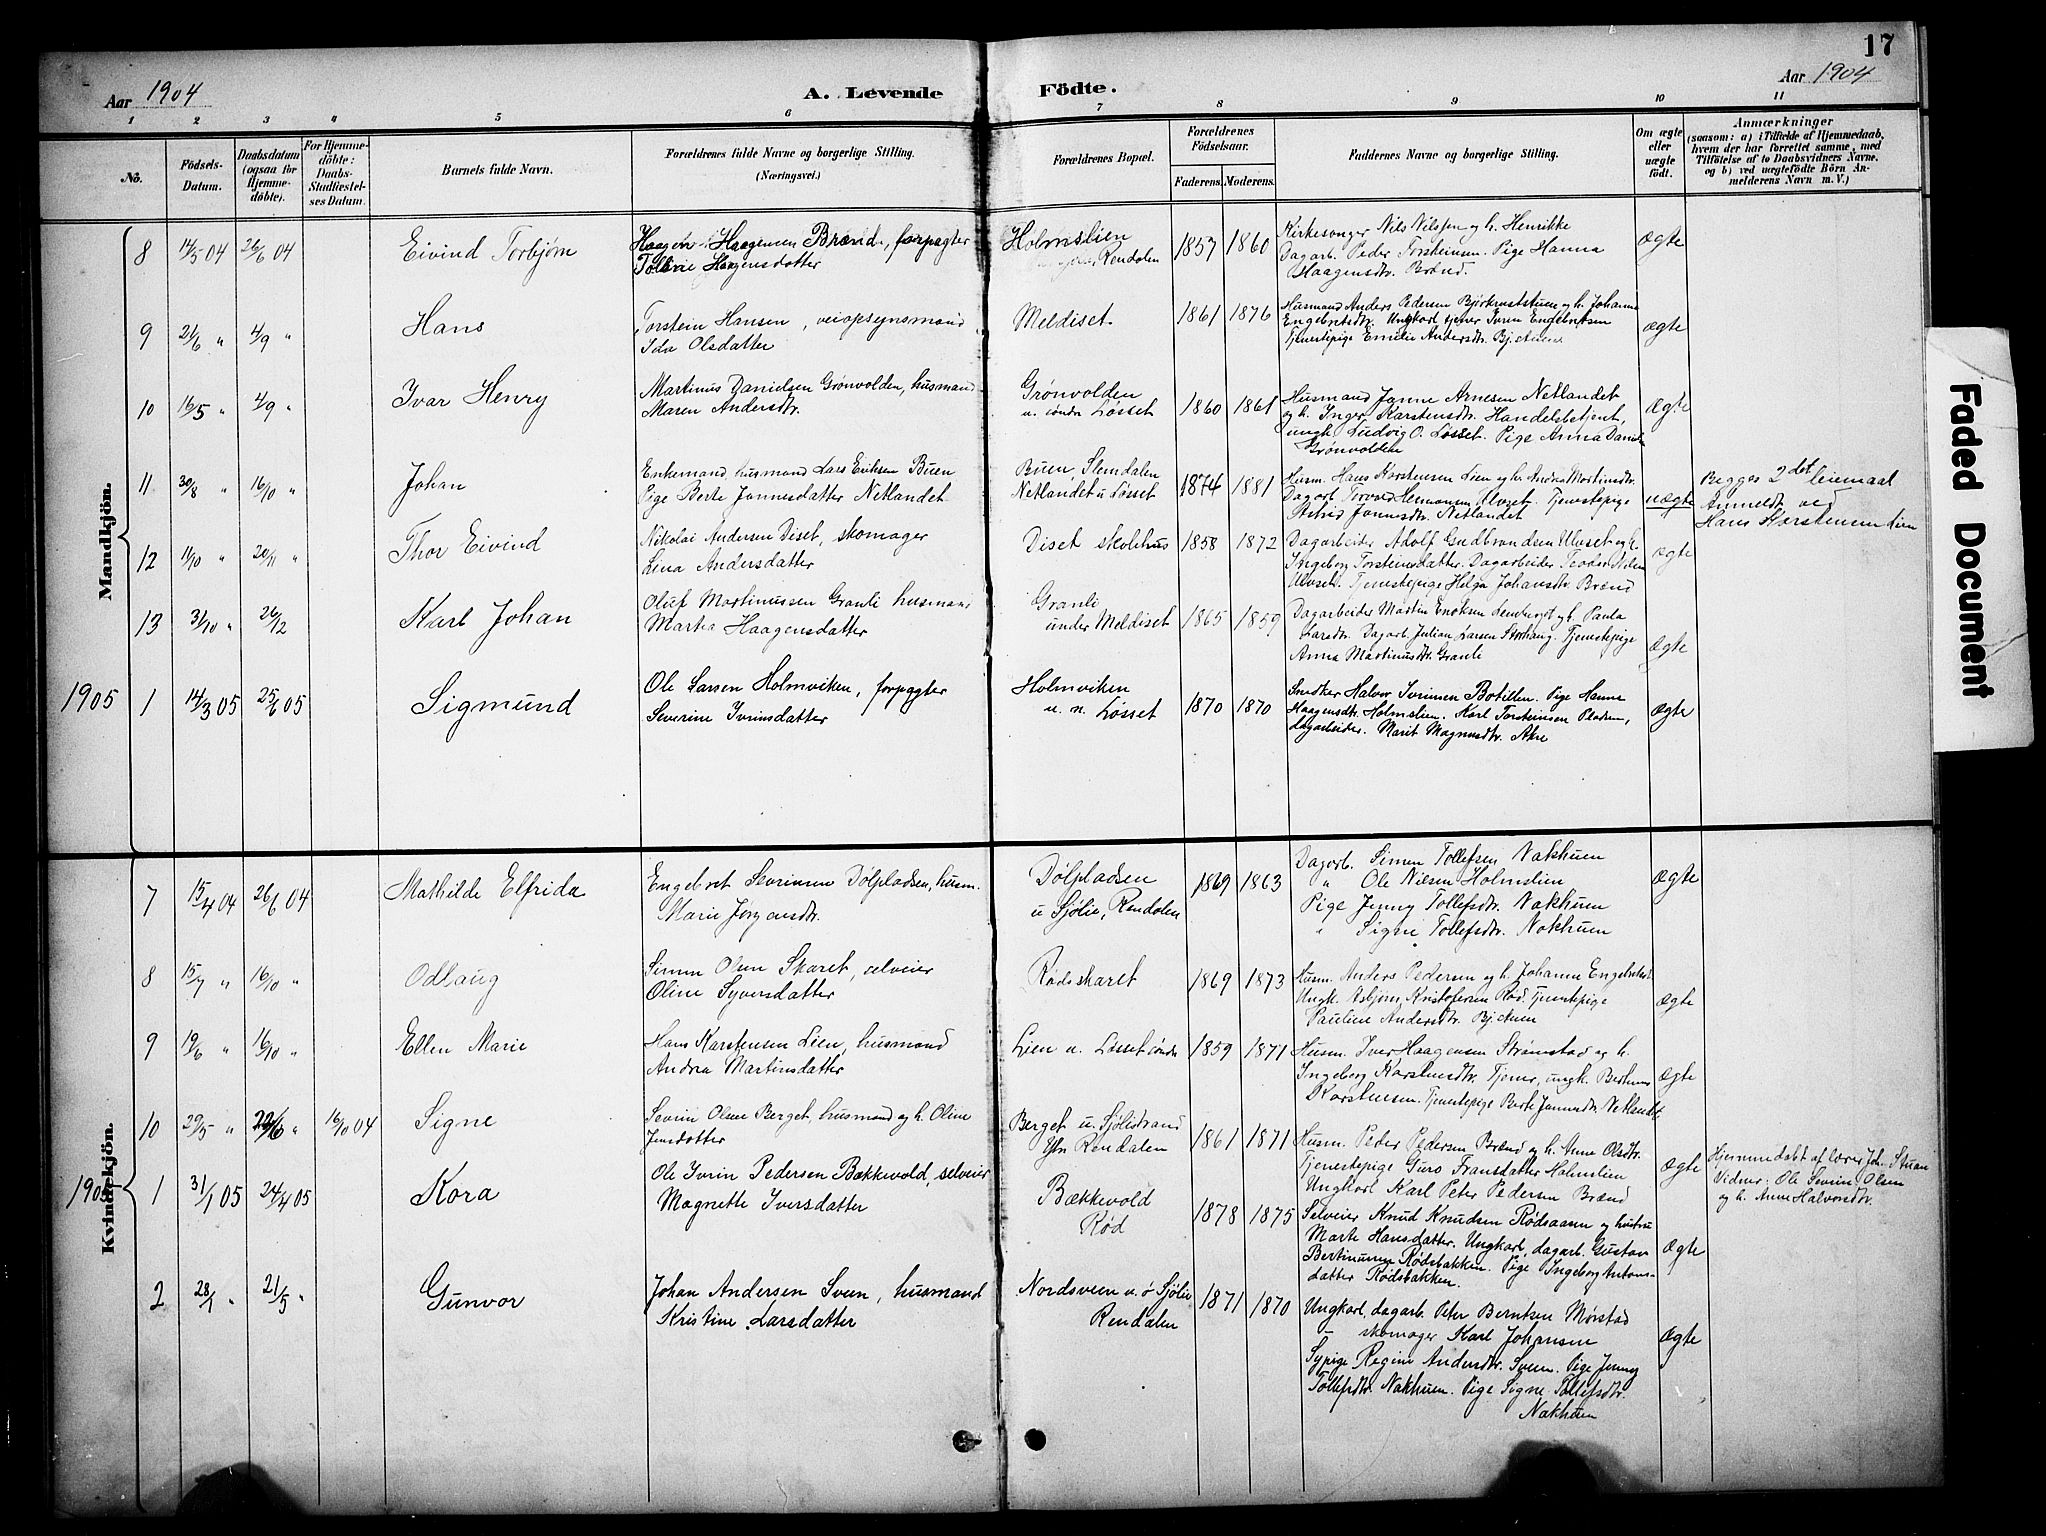 17
Aar 1904
A. Levende Födte.
Aar 1904
1 2 3 4 5 6 7 8 9 10 11
No.
Födsels-
Datum.
Daabsdatum
(ogsaa for
Hjemme-
döbte).
For Hjemme-
döbte:
Daabs-
Stadfæstel-
ses Datum.
Barnets fulde Navn.
Forældrenes fulde Navne og borgerlige Stilling.
(Næringsvei.)
Forældrenes Bopæl.
Forældrenes
Födselsaar.
Faderens. Moderens.
Faddernes Navne og borgerlige Stilling.
Om ægte
eller
uægte
födt.
Anmærkninger
(saasom: a) i Tilfælde af Hjemmedaab,
hvem der har forrettet samme, med
Tilföielse af to Daabsvidners Navne.
og b) ved uægtefödte Börn An-
melderens Navn m. V.)
Mandkjön.
8 14/5 04 26/6 04 Eivind Torbjørn
Haagen Haagensen Brænd, forpagter
Haagensdatter
Holmslien
Rendalen
1857 1860
Kirkesanger Nils Nilsen og h. Henrikke
Dagarb. Peder Torsteinsen. Pige Hanna
Haagensdtr. Brænd.
ægte
9 21/6 " 4/9 " Hans
Torstein Hansen, veiopsynsmand
Ida Olsdatter
Meldiset
1861 1876
Husmand Anders Pedersen Bjørkruststuen og h. Johanne
Engebretsdtr. Ungkarl tjener Iver Engebretsen
Tjenestepige Emilie Andersdtr. Bj.stuen
ægte
10 16/5 " 4/9 " Ivar Henry
Martinus Danielsen Grønvolden, husmand
Maren Andersdtr.
Grønvolden
u. søndre Løsset
1860 1861
Husmand Jonne Arnesen Netlandet
og h. Inger Karstensdtr. Handelsbetjent,
ungk. Ludvig O. Løsset. Pige Anna Daniels
Grønvolden
ægte
11 30/8 " 16/10 " Johan
Enkemand, husmand Lars Eriksen Buen
Pige Berte Jonnesdatter Netlandet
Buen, Slemdalen
Netlandet u. Løsset
1874 1881
Husm. Hans Karstensen Lien og h. Andrea Martinsdtr.
Dagarb. Torvald Hermansen Ulvset. Tjenestepige
Astrid Jonnesdtr. Netlandet
uægte
Begges 2det leiemaal
Anmeldt ved
Hans Karstensen Lien
12 11/10 " 20/11 " Thor Eivind
Nikolai Andersen Diset, skomager
Lina Andersdatter
Diset skolehus
1858 1872
Dagarbeider Adolf Gudbrandsen Ulvset og h.
Ingeborg Torsteinsdatter. Dagarbeider Teodor Nilsen
Ulvset. Tjenestepige Helga Johansdtr. Brænd
ægte
13 31/10 " 26/12 Karl Johan
Oluf Martinussen Granli husmand
Marte Haagensdatter
Granli
under Meldiset
1865 1859
Dagarbeider Martin Enoksen Lemberget og h. Paula
Larsdtr. Dagarb. Julian Larsen Storhaug. Tjenestepige
Anna Martinusdtr. Granli
ægte
1905 1 14/3 05 25/6 05 Sigmund
Ole Larsen Holmviken, forpagter
Severine Iverinsdatter
Holmviken
u. n. Løsset
1870 1870
Snedker Halvor Iverinsen Botillen. Pige Hanna
Haagensdtr. Holmslien. Karl Torsteinsen Pladsen,
dagarbeider. Marit Magnusdtr. Akre
ægte
Kvindekjön.
7 15/4 04 26/6 04 Mathilde Elfrida
Engebret Severinsen Dølpladsen, husm.
Marie Jørgensdtr.
Dølpladsen
u Sjølie, Rendalen
1869 1863
Dagarb. Simen Tollefsen Nakhuen
" Ole Nilsen Holmslien
Pige Jenny Tollefsdtr. Nakhuen
" Signe Tollefsdtr. Nakhuen
ægte
8 15/7 " 16/10 " Odlaug
Simen Olsen Skaret, selveier
Oline Syversdatter
Rødsskaret
1869 1873
Husm. Anders Pedersen og h. Johanne Engebretsd.
Ungk. Asbjørn Kristofersen Rød. Tjenestepige
Pauline Andersdtr. Bj.stuen
ægte
9 19/6 " 16/10 " Ellen Marie
Hans Karstensen Lien, husmand
Andrea Martinsdatter
Lien u. Løsset søndre
1859 1871
Husm. Iver Haagensen Strømstad og h.
Ingeborg Karstensdtr. Tjener, ungk. Berthinus
Karstensen. Tjenestepige Berte Jonnesdtr. Netlandet.
ægte
10 29/5 " 22/6 " 16/10 04 Signe
Severin Olsen Berget, husmand og h. Oline
Jensdatter
Berget u. Sjølistrand
Ytre Rendalen
1861 1871
Husm. Peder Pedersen Brænd og h. Anne Olsdtr.
Tjenestepige Guro Fransdatter Holmslien
Ungkarl Karl Peter Pedersen Brænd
ægte
Hjemmedøbt af lærer Joh. Stuan
Vidner: Ole Severin Olsen
og h. Anne Halvorsdtr.
1905 1 31/1 05 24/4 05 Kora
Ole Iverin Pedersen Bækkevold, selveier
Magnette Iversdatter
Bækkevold
Rød
1878 1875
Selveier Knud Knudsen Rødsaasen og hustru
Marte Hansdatter. Ungkarl, dagarb. Gustav
Bertinusen Rødsbakken. Pige Ingeborg Antons-
datter Rødsbakken.
ægte
2 28/1 " 21/5 " Gunvor
Johan Andersen Sveen, husmand
Kristine Larsdatter
Nordsveen u. ø Sjølie
Rendalen
1871 1870
Ungkarl, dagarb. Peter Berntsen Mørstad
" skomager Karl Johansen
Sypige Regine Andersdtr. Sveen. Pige Jenny
Tollefsdtr. Nakhuen. Pige Signe Tollefsdtr.
Nakhuen
ægte
Faded Document